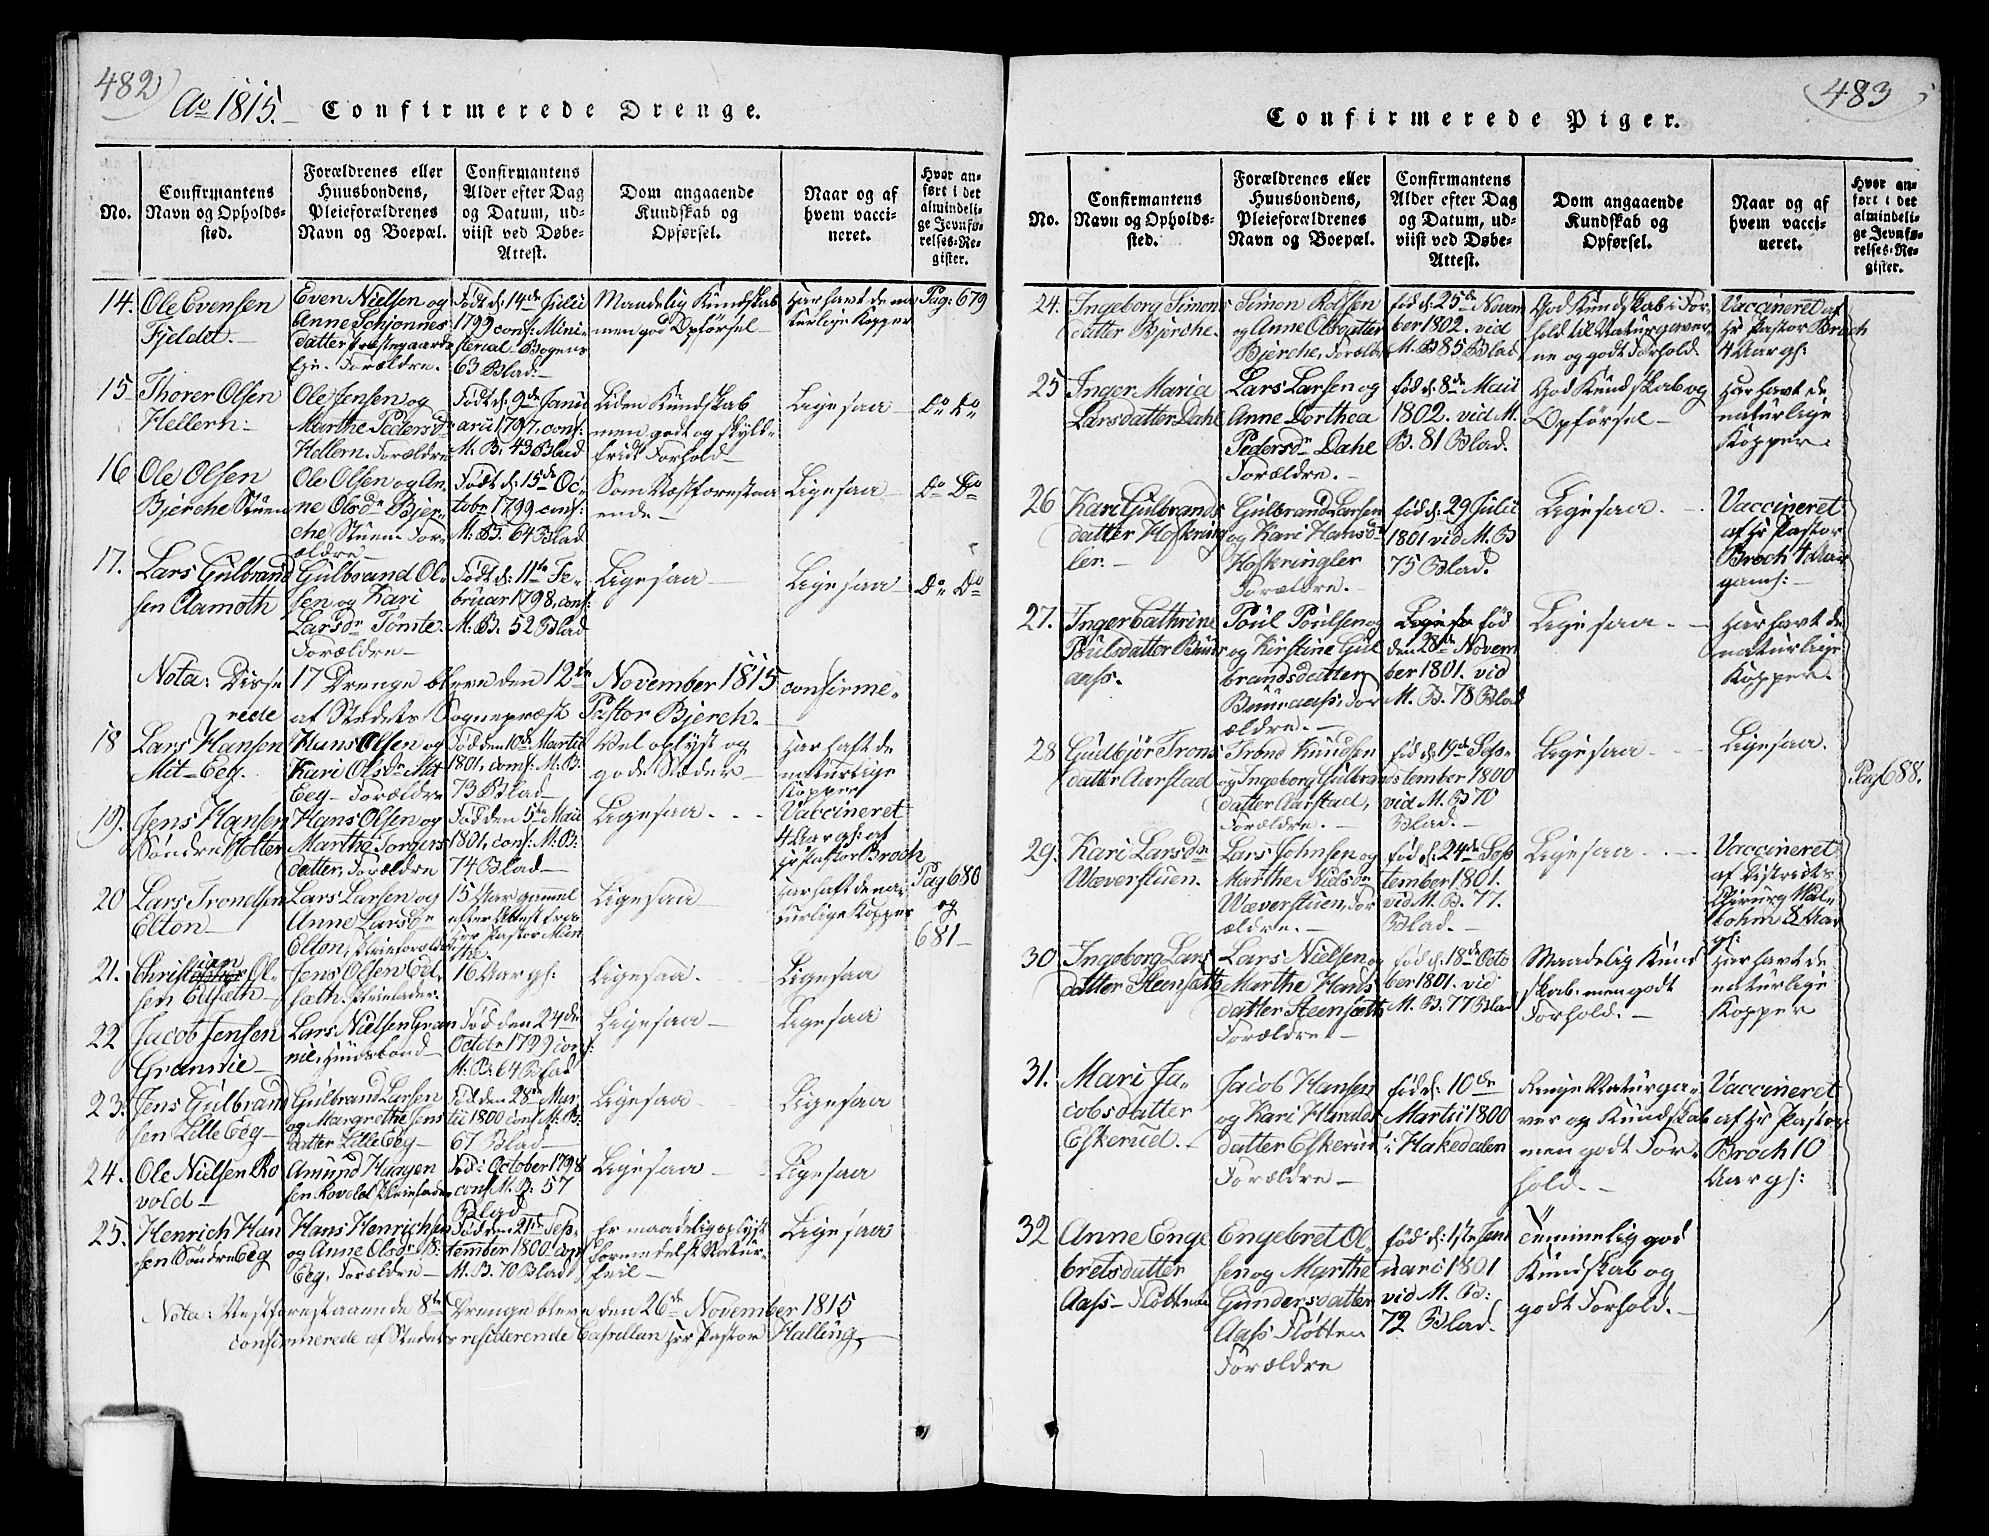 482
Ao 1815. Confirmerede Drenge.
No.
Confirmantens
Navn og Opholds-
sted.
Forældrenes eller
Huusbondens,
Pleieforældrenes
Navn og Boepæl.
Confirmantens
Alder efter Dag
og Datum, ud-
viist ved Døbe-
Attest.
Dom angaaende
Kundskab og
Opførsel.
Naar og af
hvem vacci-
neret.
Hvor an-
ført i det
almindeli-
ge Jevnfø-
relses-Re-
gister.
14.
Ole Evensen
Fjeldet.
Even Nielsen og
Anne Schjønnes
datter Præstegaards
Eje. Forældre.
Født d: 14de Julii
1799 conf: Mini-
sterial-Bogens
63 Blad.
Maadelig Kundskab
men god Opførsel
Har havt de na
turlige Kopper
Pag: 679
15
Thorer Olsen
Hellern.
Ole Jensen og
Marthe Pedersdr
Hellern. Forældre
Født d: 9de Janu
arii 1797. conf:
M. B. 43 Blad
Liden Kundskab
men godt og skyld-
frit Forhold
Ligesaa
Do Do
16
Ole Olsen
Bjerche Stuen
Ole Olsen og An-
ne Olsdr Bjer-
che Stuen. For-
ældre
Født d: 15de Oc-
tobr 1799 conf:
M: B. 64 Blad
Som Næstforestaa
ende
Ligesaa
Do Do
17.
Lars Gulbrand
sen Aamoth
Gulbrand Ol-
sen og Kari
Larsdr Tømte
Forældre
Født d: 11te Fe-
bruar 1798. conf:
M. B. 52 Blad
Ligesaa
Ligesaa
Do Do
Nota: Disse 17 Drenge bleve den 12te November 1815 confirme-
rede af Stedets Sognepræst Pastor Bjerch.
18
Lars Hansen
Mit-Eeg.
Hans Olsen og
Kari Olsdr Mit
Eeg Forældre
Fød den 10de Martii
1801, conf: M: B.
73 Blad
Vel oplyst og
gode Sæder
Har haft de
naturlige
Kopper
19.
Jens Hansen
Søndre Holter
Hans Olsen og
Marthe Torgers
datter, Forældre
Fød den 5te Maii
1801, conf: M: B:
74 Blad
Ligesaa
Vaccineret
4 Aar gl: af
Hr Pastor Broch
20
Lars Tronelsen
Elton
Lars Larsen og
Anne Larsdr
Elton, Pleieforældre
15 Aar gammel
efter Attest fra
Hr Pastor Mun
the.
Ligesaa
Har haft de na-
turlige Kopper
Pag 680
og
681
21.
Christian Ol-
sen
Jens Olsen
sæth. Pleiefader.
16 Aar gl:
Ligesaa
Ligesaa
22
Jacob Jensen
Grannie
Lars Nielsen Gran
nie, Huusbond
Fød den 24de
Octobr 1799 conf:
M: B: 64 Blad
Ligesaa
Ligesaa
23.
Jens Gulbrand
sen Lille Eeg
Gulbrand Larsen
og Margrethe Jens
datter Lille Eeg
Fød den 28de Mar-
tii 1800 conf M: B:
67 Blad
Ligesaa
Ligesaa
24.
Ole Nielsen Ro
vold
Amund Haagen
sen Rovold Pleiefader
Fød: October 1798
conf M. B: 57
Blad
Ligesaa
Ligesaa
25.
Henrich Han
sen Søndre Eeg
Hans Henrichsen
og Anne Olsdr S:
Eeg, Forældre
Fød den 21de Sep-
tember 1800 conf
M. B. 70 Blad
Er maadelig oplyst
formedelst Natur-
feil
Ligesaa
Nota: Næstforestaaende 8te Drenge bleve den 26de November 1815
confirmerede af Stedets residerende Capellan Hr Pastor Halling
483
Confirmerede Piger.
No.
Confirmantens
Navn og Opholds-
sted.
Forældrenes eller
Huusbondens,
Pleieforældrenes
Navn og Boepæl.
Confirmantens
Alder efter Dag
og Datum, ud-
viist ved Døbe-
Attest.
Dom angaaende
Kundskab og
Opførsel.
Naar og af
hvem vacci-
neret.
Hvor an-
ført i det
almindeli-
ge Jevnfø-
relses-Re-
gister.
24.
Ingeborg Simons
datter Bjerche.
Simon Rolfsen
og Anne Olsdatter
Bjerche, Forældre
fød d: 25de Novem
ber 1802. vid
M. B 85 Blad
God Kundskab i For
hold til Naturgaver-
ne og godt Forhold
Vaccineret af
Hr Pastor Broch
4 Aar gl:
25
Inger Maria
Larsdatter Dahl
Lars Larsen og
Anne Dorthea
Pedersdr Dahl
Forældre.
fød d: 8de Maii
1802. vid M.
B. 81 Blad.
God Kundskab og
Opførsel
Har havt de
naturlige
Kopper.
26
Kari Gulbrands
datter Hofkring
ler.
Gulbrand Larsen
og Kari Hansdr
Hofkringler
Forældre.
fød d. 29 Julii
1801 vid M. B
75 Blad.
Ligesaa.
Vaccineret
af Hr Pastor
Broch 4 Aar
gaml:
27.
Inger Cathrine
Poulsdatter Buur
aass.
Poul Poulsen
og Kirstine Gul
brandsdatter
Buuraass, For
ældre.
Ligesa fød
den 28de Novem
ber 1801. vid
M. B. 78 Blad
Ligesaa.
Har havt de
naturlige
Kopper.
28
Gudbjør Trons
datter Aarstad
Trond Knudsen
og Ingeborg Gulbrands
datter Aarstad,
Forældre.
fød d: 19de Sep-
tember 1800
vid M. B 70
Blad.
Ligesaa
Ligesaa.
Pag 688.
29.
Kari Larsdr
Wæverstuen.
Lars Johnsen og
Marthe Nielsdr
Wæverstuen, For
ældre.
fød d: 24de Sep
tember 1801.
vid M. B. 77.
Blad.
Ligesaa
Vaccineret
af Districts
Chirurg Mal-
bohm 8 Aar
gl:
30
Ingeborg Lars
datter Steensæth
Lars Nielsen og
Marthe Hans
datter Steensæth
Forældre
fød d: 18de Octo
ber 1801. vid
M. B. 77 Blad
Maadelig Kund
skab. men godt
Forhold.
Har havt de
naturlige
Kopper
31.
Mari Ja-
cobsdatter
Eskerud.
Jacob Hansen
og Kari Haralds
datter Eskerud
Forældre
fød d: 10de
Martii 1800
i Hakedalen
Ringe Naturga-
ver og Kundskab
men godt For-
hold.
Vaccineret
af Hr Pastor
Broch 10
Aar gl:
32
Anne Enge
bretsdatter
Aass-Flotten
Engebret Ol-
sen og Marthe
Gundersdatter
Aass Flotten
Forældre
fød d: 1ste Jan
uari 1801
vid M. B:
72 Blad.
Temmelig god
Kundskab og
godt Forhold.